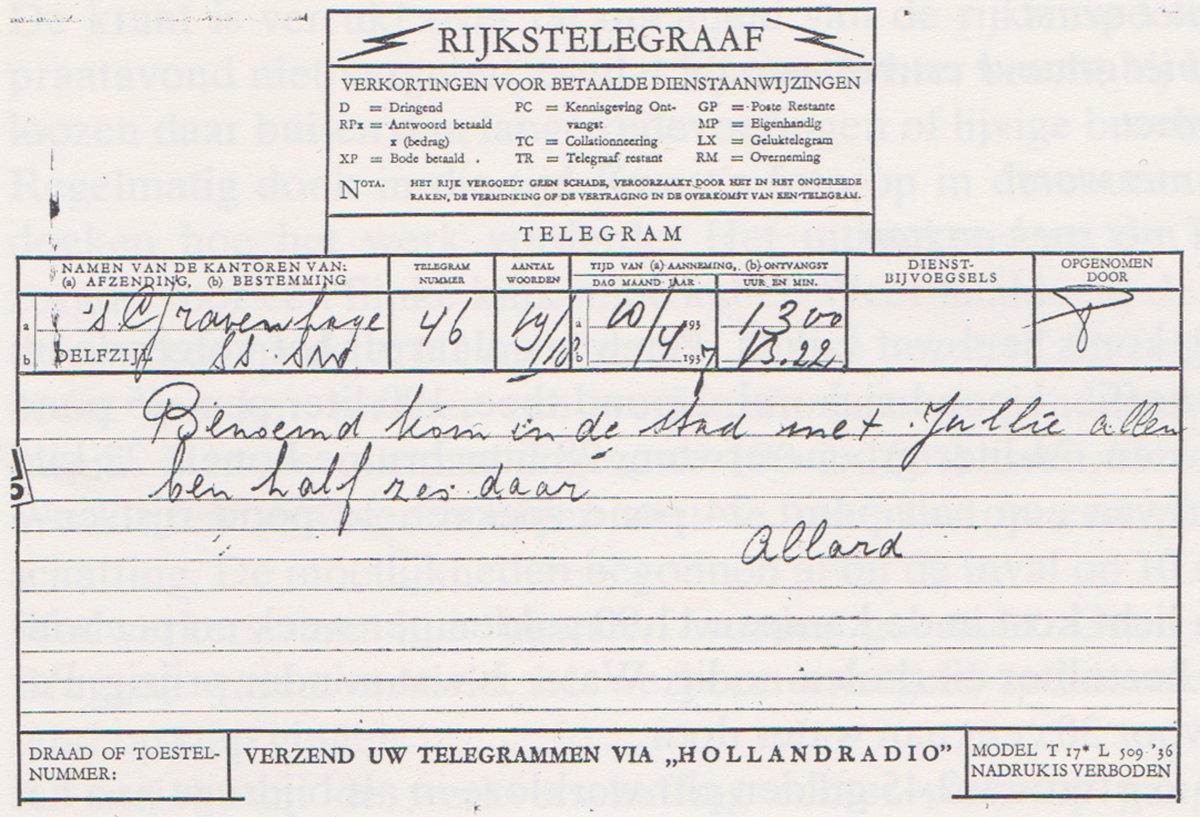 RIJKSTELEGRAAF
VERKORTINGEN VOOR BETAALDE DIENSTAANWIJZINGEN
D = Dringend
RPx = Antwoord betaald
x (bedrag)
XP = Bode betaald .
PC = Kennisgeving Ont-
vangst
TC = Collationneering
TR = Telegraaf restant
GP = Poste Restante
MP = Eigenhandig
LX = Geluktelegram
RM = Overneming
NOTA. HET RIJK VERGOEDT GEEN SCHADE, VEROORZAAKT DOOR HET IN HET ONGEREEDE
RAKEN, DE VERMINKING OF DE VERTRAGING IN DE OVERKOMST VAN EEN TELEGRAM.
TELEGRAM
NAMEN VAN DE KANTOREN VAN:
(a) AFZENDING, (b) BESTEMMING
TELEGRAM
NUMMER
AANTAL
WOORDEN
TIJD VAN (a) AANNEMING, (b) ONTVANGST
DAG MAAND JAAR
UUR EN MIN.
DIENST-
BIJVOEGSELS
OPGENOMEN
DOOR
a 's Gravenhage 46 19/18 a 10/ 193 1300
b DELFZIJL SS. b 4 1937 13.22
Benoemd kom in de stad met Jullie allen
ben half zes daar
Allard
DRAAD OF TOESTEL-
NUMMER:
VERZEND UW TELEGRAMMEN VIA „HOLLANDRADIO”
MODEL T 17* L 509 '36
NADRUK IS VERBODEN